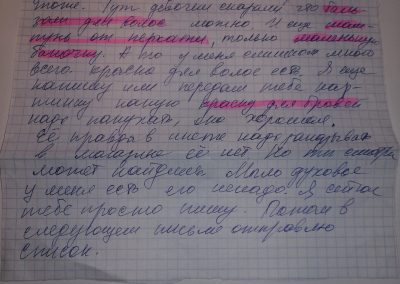 зноте. Тут девочки сказали что баль-
зам для волос можно И ещё шам-
пунь от перхоти, только маленькую
баночку. А то у меня слишком много
всего краска для волос есть Я ещё
напишу или передам тебе кар-
тинку какую краску для бровей
надо покупать, она хорошая,
Её правда в инете надо заказывать
в магазине её нет Но ты смотри
может найдёшь. Мыло духовое
у меня есть его ненадо. Я сейчас
тебе просто пишу. Потом в
следующем письме отправлю
список.